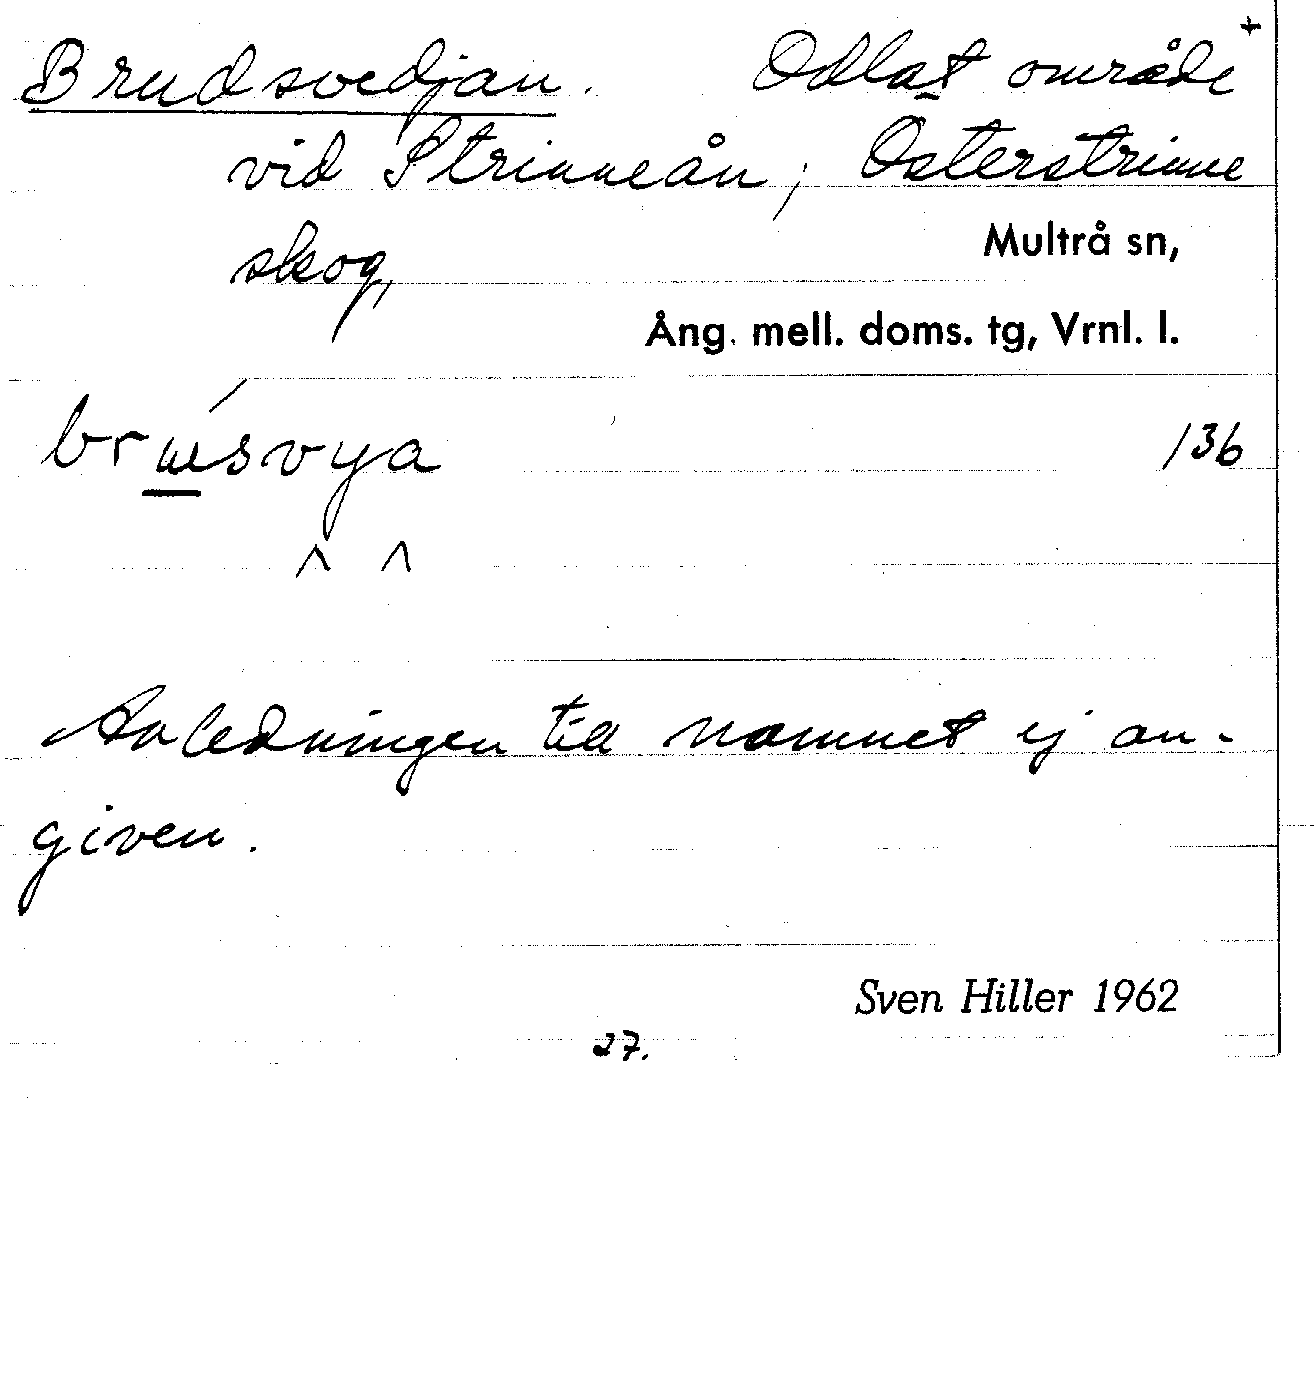 Brudsvedjan. Odlat område +
vid Strinneån; Österstrinne
skog,
Multrå sn,
Ång. mell. doms. tg, Vrnl. l.
136
Anledningen till namnet ej an-
given.
Sven Hiller 1962
27.